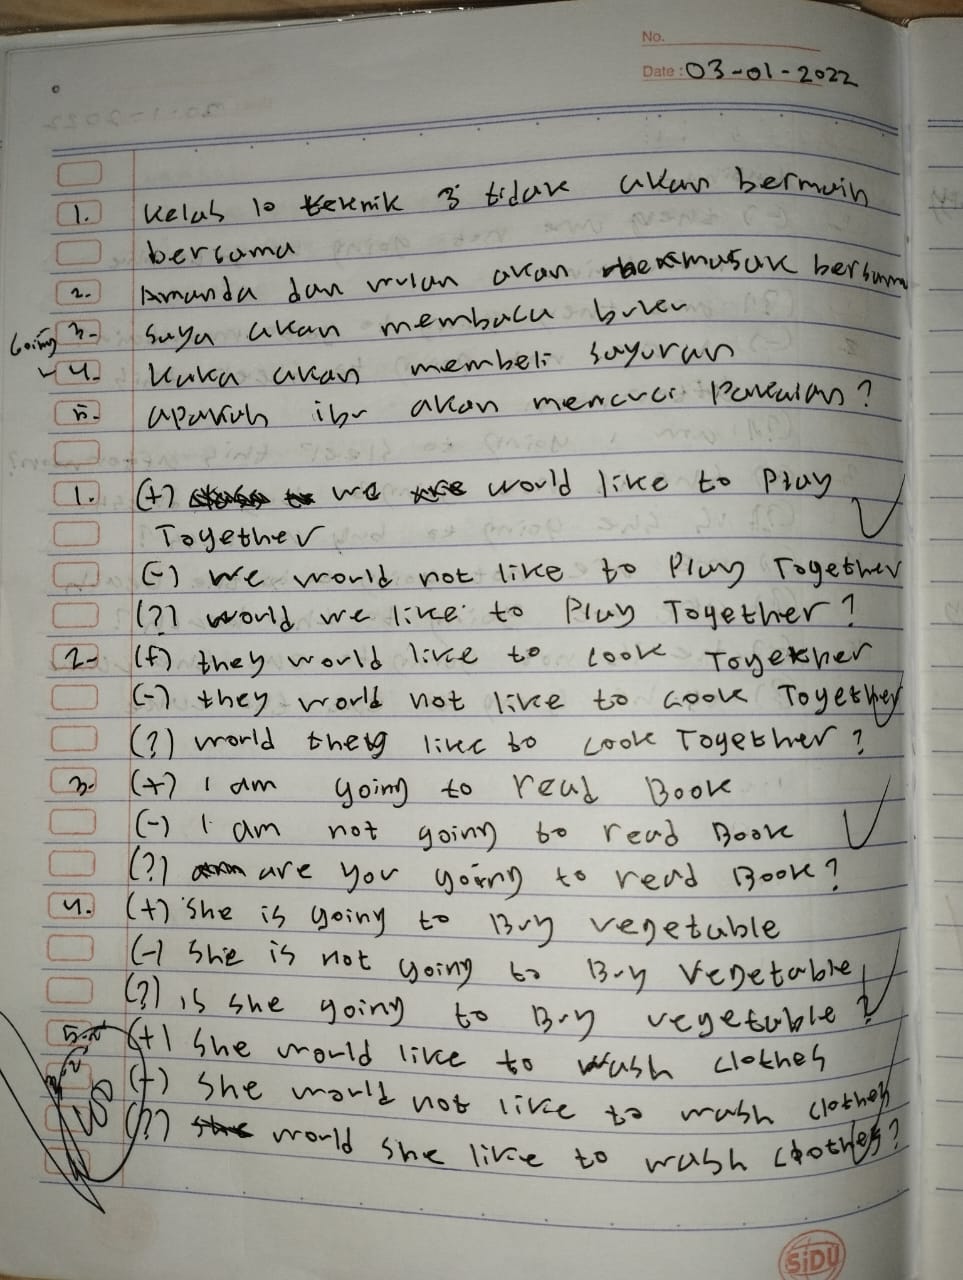 No.
Date : 03-01-2022
1. Kelas 10 teknik 3 tidak akan bermain
bersama
2. Amanda dan wulan akan memasak bersama
Going 3. Saya akan membaca buku
4. Kaka akan membeli sayuran
5. apakah ibu akan mencuci Pakaian?
1. (+) we would like to Play
Together
(-) we would not like to Play Together
(?) would we like to Play Together?
2- (+) they would like to cook Together
(-) they would not like to cook Together
(?) would they like to cook Together?
3. (+) I am going to read Book
(-) I am not going to read Book
(?) are you going to read Book?
4. (+) She is going to Buy vegetable
(-) She is not going to Buy Vegetable
(?) is she going to Buy vegetable?
5. (+) She would like to wash clothes
(-) She would not like to wash clothes
(?) would she like to wash clothes?
SiDU